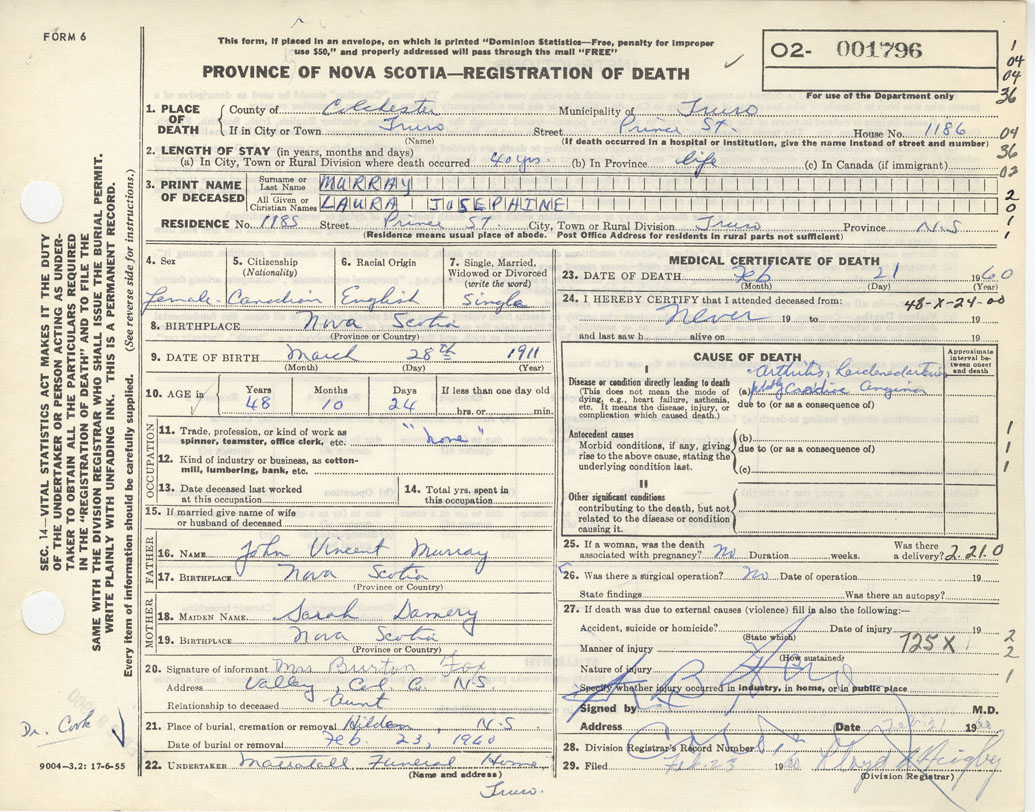 FORM 6
This form, if placed in an envelope, on which is printed "Dominion Statistics—Free, penalty for improper
use $50," and properly addressed will pass through the mail "FREE"
PROVINCE OF NOVA SCOTIA—REGISTRATION OF DEATH
O2- 001796
For use of the Department only
1
04
04
36
1. PLACE OF DEATH
County of Colchester Municipality of Truro
If in City or Town Truro Street Prince St. House No. 1186
(Name) (If death occurred in a hospital or institution, give the name instead of street and number)
04
36
02
2. LENGTH OF STAY (in years, months and days)
(a) In City, Town or Rural Division where death occurred 40 yrs. (b) In Province life (c) In Canada (if immigrant)
3. PRINT NAME OF DECEASED
Surname or Last Name MURRAY
All Given or Christian Names LAURA JOSEPHINE
RESIDENCE No. 1185 Street Prince St. City, Town or Rural Division Truro Province N.S
(Residence means usual place of abode. Post Office Address for residents in rural parts not sufficient)
4. Sex
female
5. Citizenship
(Nationality)
Canadian
6. Racial Origin
English
7. Single, Married,
Widowed or Divorced
(write the word)
Single
8. BIRTHPLACE Nova Scotia
(Province or Country)
9. DATE OF BIRTH March 28th 1911
(Month) (Day) (Year)
10. AGE in
Years Months Days If less than one day old
48 10 24 hrs. or min.
OCCUPATION
11. Trade, profession, or kind of work as
spinner, teamster, office clerk, etc. "none"
12. Kind of industry or business, as cotton-
mill, lumbering, bank, etc.
13. Date deceased last worked
at this occupation
14. Total yrs. spent in
this occupation
15. If married give name of wife
or husband of deceased
FATHER
16. NAME John Vincent Murray
17. BIRTHPLACE Nova Scotia
(Province or Country)
MOTHER
18. MAIDEN NAME Sarah Damery
19. BIRTHPLACE Nova Scotia
(Province or Country)
20. Signature of informant Mrs Burton Fox
Address Valley, Col. Co. N.S.
Relationship to deceased Aunt
21. Place of burial, cremation or removal Hilden, N.S
Date of burial or removal Feb. 23, 1960
22. UNDERTAKER Mattatall Funeral Home,
(Name and address)
Truro.
MEDICAL CERTIFICATE OF DEATH
23. DATE OF DEATH Feb 21 1960
(Month) (Day) (Year)
24. I HEREBY CERTIFY that I attended deceased from: 48-X-24-00
Never 19 to 19
and last saw h alive on 19
CAUSE OF DEATH
Approximate
interval be-
tween onset
and death
I
Disease or condition directly leading to death
(This does not mean the mode of
dying, e.g., heart failure, asthenia,
etc. It means the disease, injury, or
complication which caused death.)
Arthritis,
(a) Cardiac Angina
due to (or as a consequence of)
Antecedent causes
Morbid conditions, if any, giving
rise to the above cause, stating the
underlying condition last.
(b)
due to (or as a consequence of)
(c)
II
Other significant conditions
contributing to the death, but not
related to the disease or condition
causing it.
25. If a woman, was the death
associated with pregnancy? no Duration weeks. Was there
a delivery? 2.21.0
26. Was there a surgical operation? no Date of operation 19
State findings Was there an autopsy?
27. If death was due to external causes (violence) fill in also the following:—
Accident, suicide or homicide? Date of injury 19
(State which)
Manner of injury 725X
(How sustained)
Nature of injury
Specify whether injury occurred in industry, in home, or in public place
Signed by M.D.
Address Date Feb 21 1960
28. Division Registrar's Record Number
29. Filed Feb. 23 1960
(Division Registrar)
SEC. 14—VITAL STATISTICS ACT MAKES IT THE DUTY
OF THE UNDERTAKER OR PERSON ACTING AS UNDER-
TAKER TO OBTAIN ALL THE PARTICULARS REQUIRED
IN THE "REGISTRATION OF DEATH" AND TO FILE THE
SAME WITH THE DIVISION REGISTRAR WHO SHALL ISSUE THE BURIAL PERMIT.
WRITE PLAINLY WITH UNFADING INK. THIS IS A PERMANENT RECORD.
Every item of information should be carefully supplied. (See reverse side for instructions.)
Dr. Cook
9004-3.2: 17-6-55